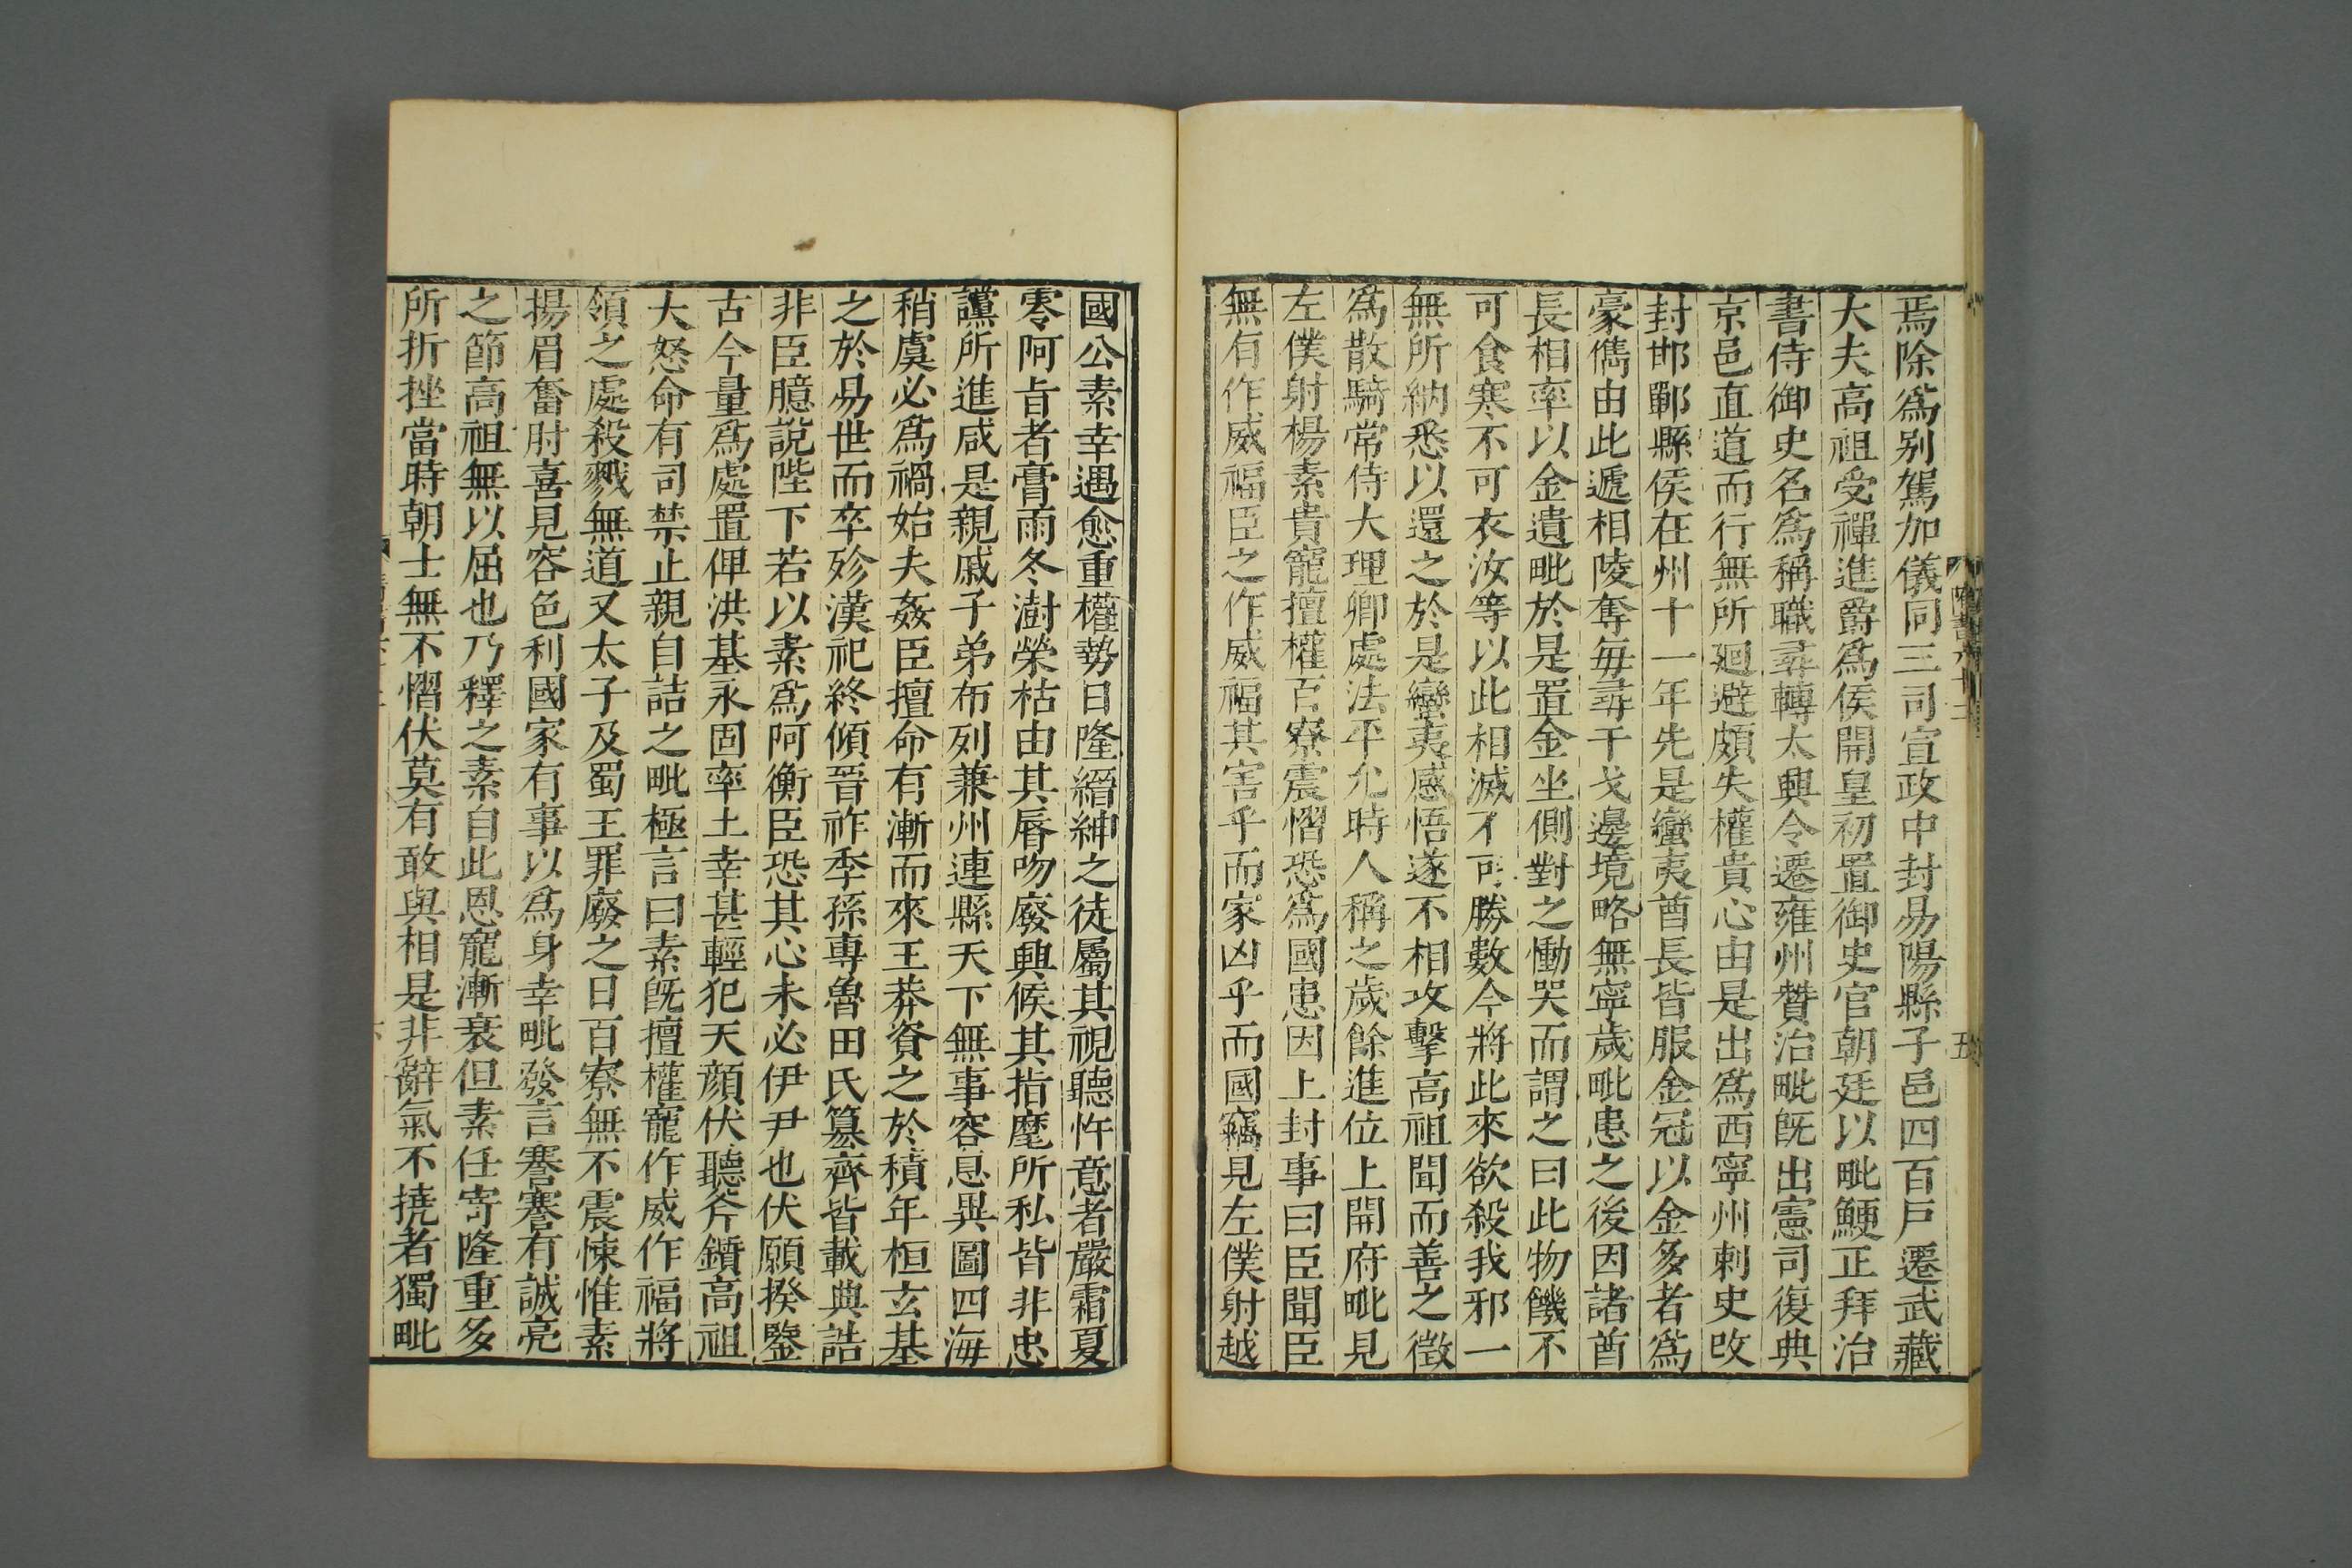 焉除爲别駕加儀同三司宣政中封易陽縣子邑四百戸遷武藏
大夫高祖受禪進爵爲侯開皇初置御史官朝廷以毗鯁正拜治
書侍御史名爲稱職尋轉大興令遷雍州贊治毗旣出憲司復典
京邑直道而行無所廻避頗失權貴心由是出爲西寧州刺史改
封邯鄲縣侯在州十一年先是蠻夷酋長皆服金冠以金多者爲
豪儁由此遞相陵奪每尋干戈邊境略無寧歲毗患之後因諸酋
長相率以金遺毗於是置金坐側對之慟哭而謂之曰此物饑不
可食寒不可衣汝等以此相滅不可勝數今將此來欲殺我邪一
無所納悉以還之於是蠻夷感悟遂不相攻擊高祖聞而善之徵
爲散騎常侍大理卿處法平允時人稱之歲餘進位上開府毗見
左僕射楊素貴寵擅權百寮震慴恐爲國患因上封事曰臣聞臣
無有作威福臣之作威福其害乎而家凶乎而國竊見左僕射越
國公素幸遇愈重權勢日隆縉紳之徒屬其視聽忤意者嚴霜夏
零阿旨者膏雨冬澍榮枯由其脣吻廢興候其指麾所私皆非忠
讜所進咸是親戚子弟布列兼州連縣天下無事容息異圖四海
稍虞必爲禍始夫姦臣擅命有漸而來王莽資之於積年桓玄基
之於易世而卒殄漢祀終傾晉祚季孫專魯田氏簒齊皆載典誥
非臣臆說陛下若以素爲阿衡臣恐其心未必伊尹也伏願揆鑒
古今量爲處置俾洪基永固率土幸甚輕犯天顔伏聽斧鑕高祖
大怒命有司禁止親自詰之毗極言曰素旣擅權寵作威作福將
領之處殺戮無道又太子及蜀王罪廢之日百寮無不震悚惟素
揚眉奮肘喜見容色利國家有事以爲身幸毗發言謇謇有誠亮
之節高祖無以屈也乃釋之素自此恩寵漸衰但素任寄隆重多
所折挫當時朝士無不慴伏莫有敢與相是非辭氣不撓者獨毗